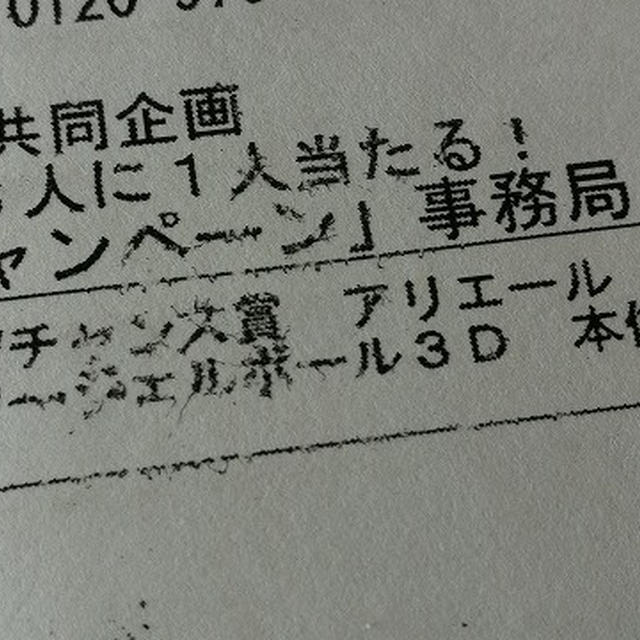 0120
共同企画
人に1人当たる！
ャンペーン」事務局
チャンス大賞 アリエール
ージェルボール3D 本体